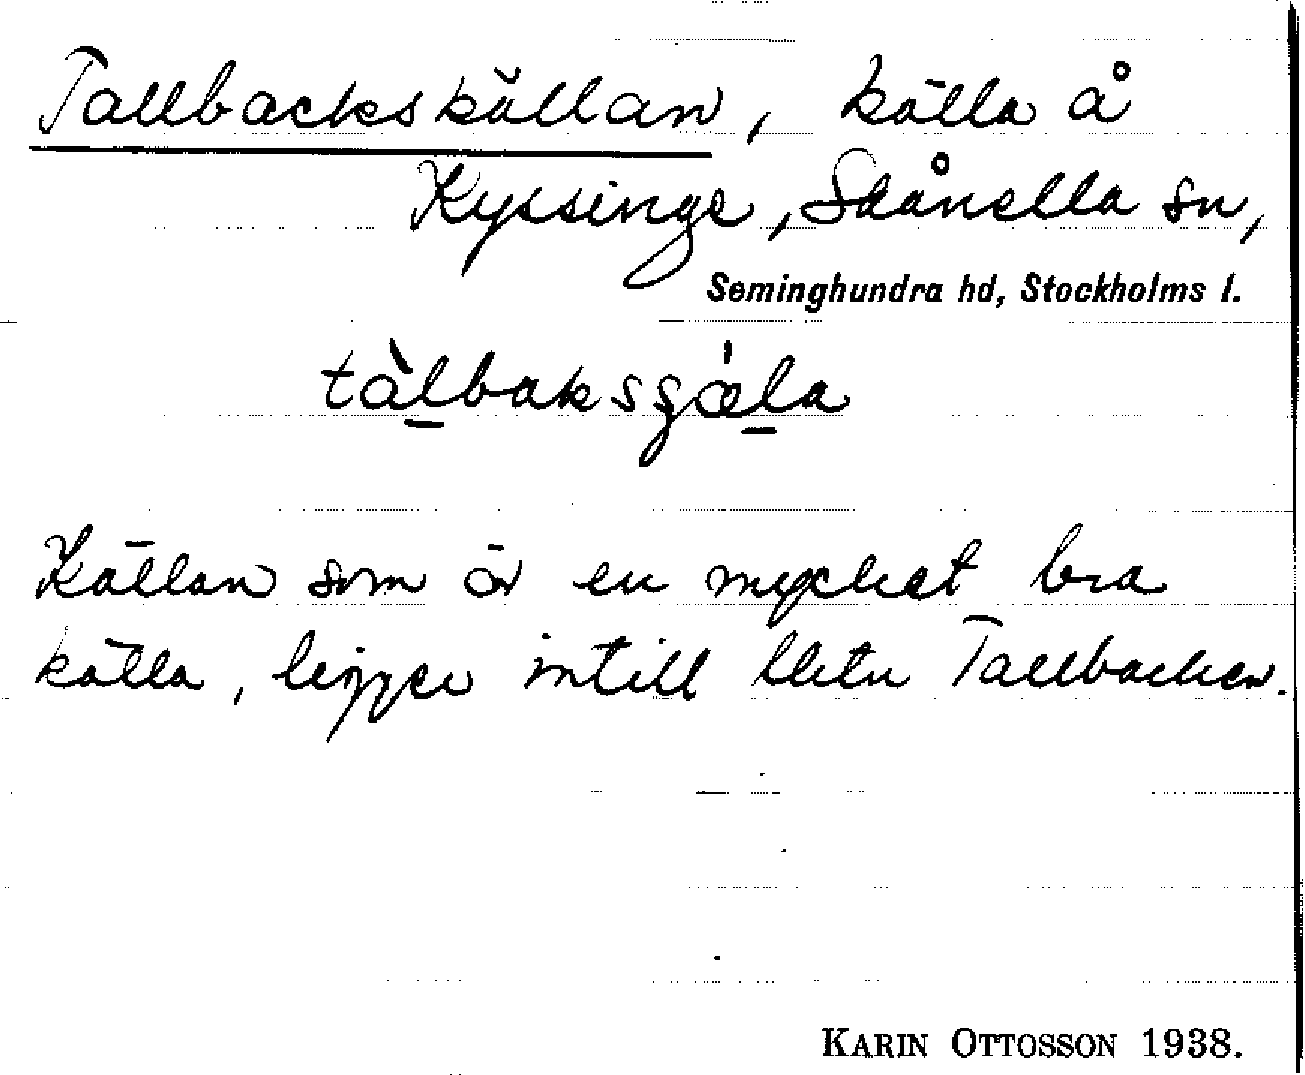 Tallbackskällan, källa å
Kyssinge, Skånella sn,
Seminghundra hd, Stockholms l.
tàlbaksgǽla
Källan som är en mycket bra
källa, ligger intill Tallbacken.
KARIN OTTOSSON 1938.